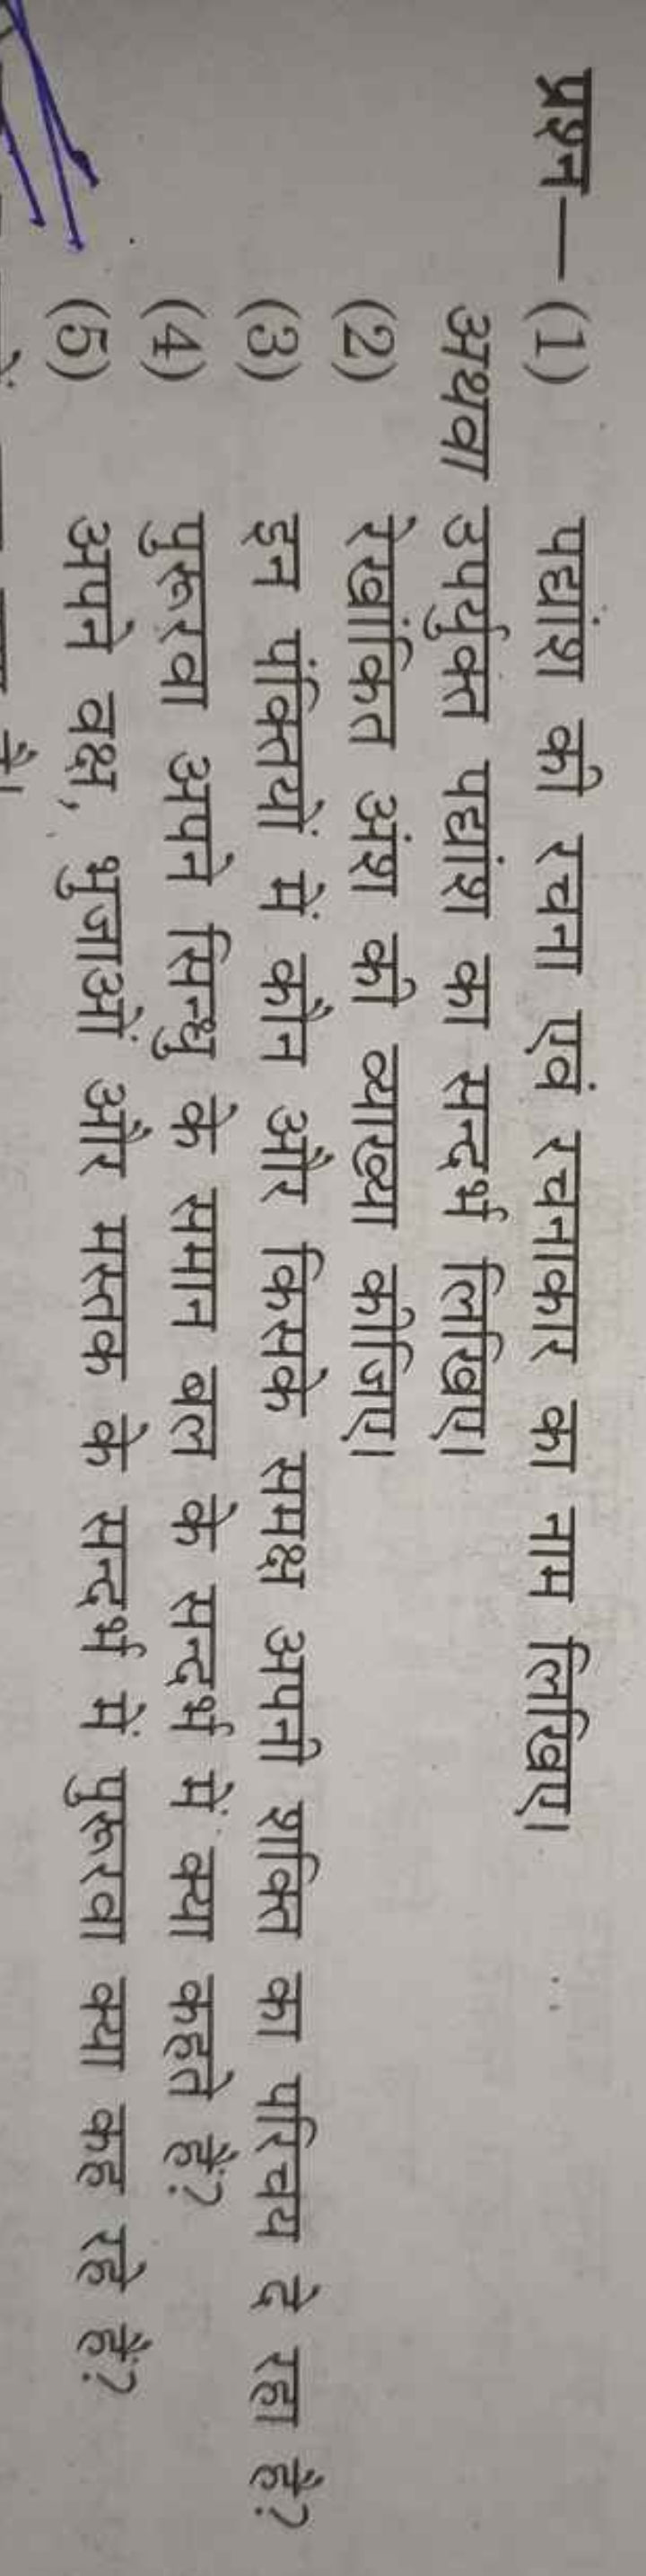 प्रश्न— (1) पद्यांश की रचना एवं रचनाकार का नाम लिखिए।
अथवा उपर्युक्त पद्यांश का सन्दर्भ लिखिए।
(2) रेखांकित अंश की व्याख्या कीजिए।
(3) इन पंक्तियों में कौन और किसके समक्ष अपनी शक्ति का परिचय दे रहा है?
(4) पुरूरवा अपने सिन्धु के समान बल के सन्दर्भ में क्या कहते हैं?
(5) अपने वक्ष, भुजाओं और मस्तक के सन्दर्भ में पुरूरवा क्या कह रहे हैं?